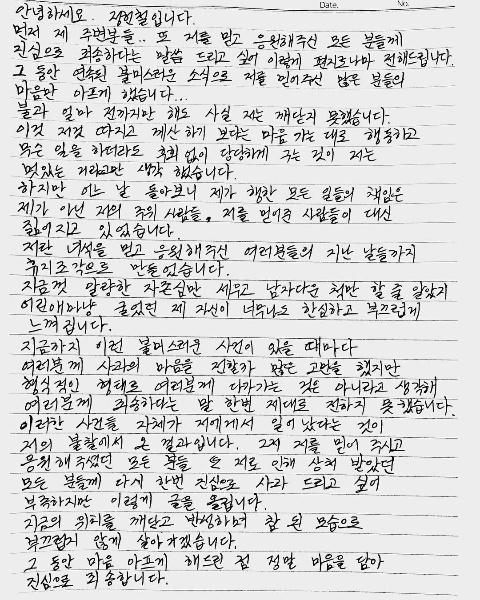 Date. No.
안녕하세요. 정헌철입니다.
먼저 제 주변분들.. 또 저를 믿고 응원해주신 모든 분들께
진심으로 죄송하다는 말씀 드리고 싶어 이렇게 편지로나마 전해드립니다.
그 동안 연속된 불미스러운 소식으로 저를 믿어주신 많은 분들의
마음만 아프게 했습니다...
불과 얼마 전까지만 해도 사실 저는 깨닫지 못했습니다.
이것 저것 따지고 계산하기 보다는 마음 가는 대로 행동하고
무슨 일을 하더라도 후회 없이 당당하게 구는 것이 저는
멋있는 거라고만 생각 했습니다.
하지만 어느 날 돌아보니 제가 행한 모든 일들의 책임은
제가 아닌 저의 주위 사람들, 저를 믿어준 사람들이 대신
짊어지고 있었습니다.
저란 녀석을 믿고 응원해주신 여러분들의 지난 날들까지
휴지조각으로 만들었습니다.
지금껏 알량한 자존심만 세우고 남자다운 척만 할 줄 알았지
어린애마냥 굴었던 제 자신이 너무나도 한심하고 부끄럽게
느껴집니다.
지금까지 이런 불미스러운 사건이 있을 때마다
여러분께 사과의 마음을 전할까 많은 고민을 했지만
형식적인 형태로 여러분께 다가가는 것은 아니라고 생각해
여러분께 죄송하다는 말 한번 제대로 전하지 못했습니다.
이러한 사건들 자체가 저에게서 일어났다는 것이
저의 불찰에서 온 결과입니다. 그저 저를 믿어 주시고
응원해주셨던 모든 분들 또 저로 인해 상처 받았던
모든 분들께 다시 한번 진심으로 사과 드리고 싶어
부족하지만 이렇게 글을 올립니다.
지금의 위치를 깨닫고 반성하며 참 된 모습으로
부끄럽지 않게 살아가겠습니다.
그 동안 마음 아프게 해드린 점 정말 마음을 담아
진심으로 죄송합니다.